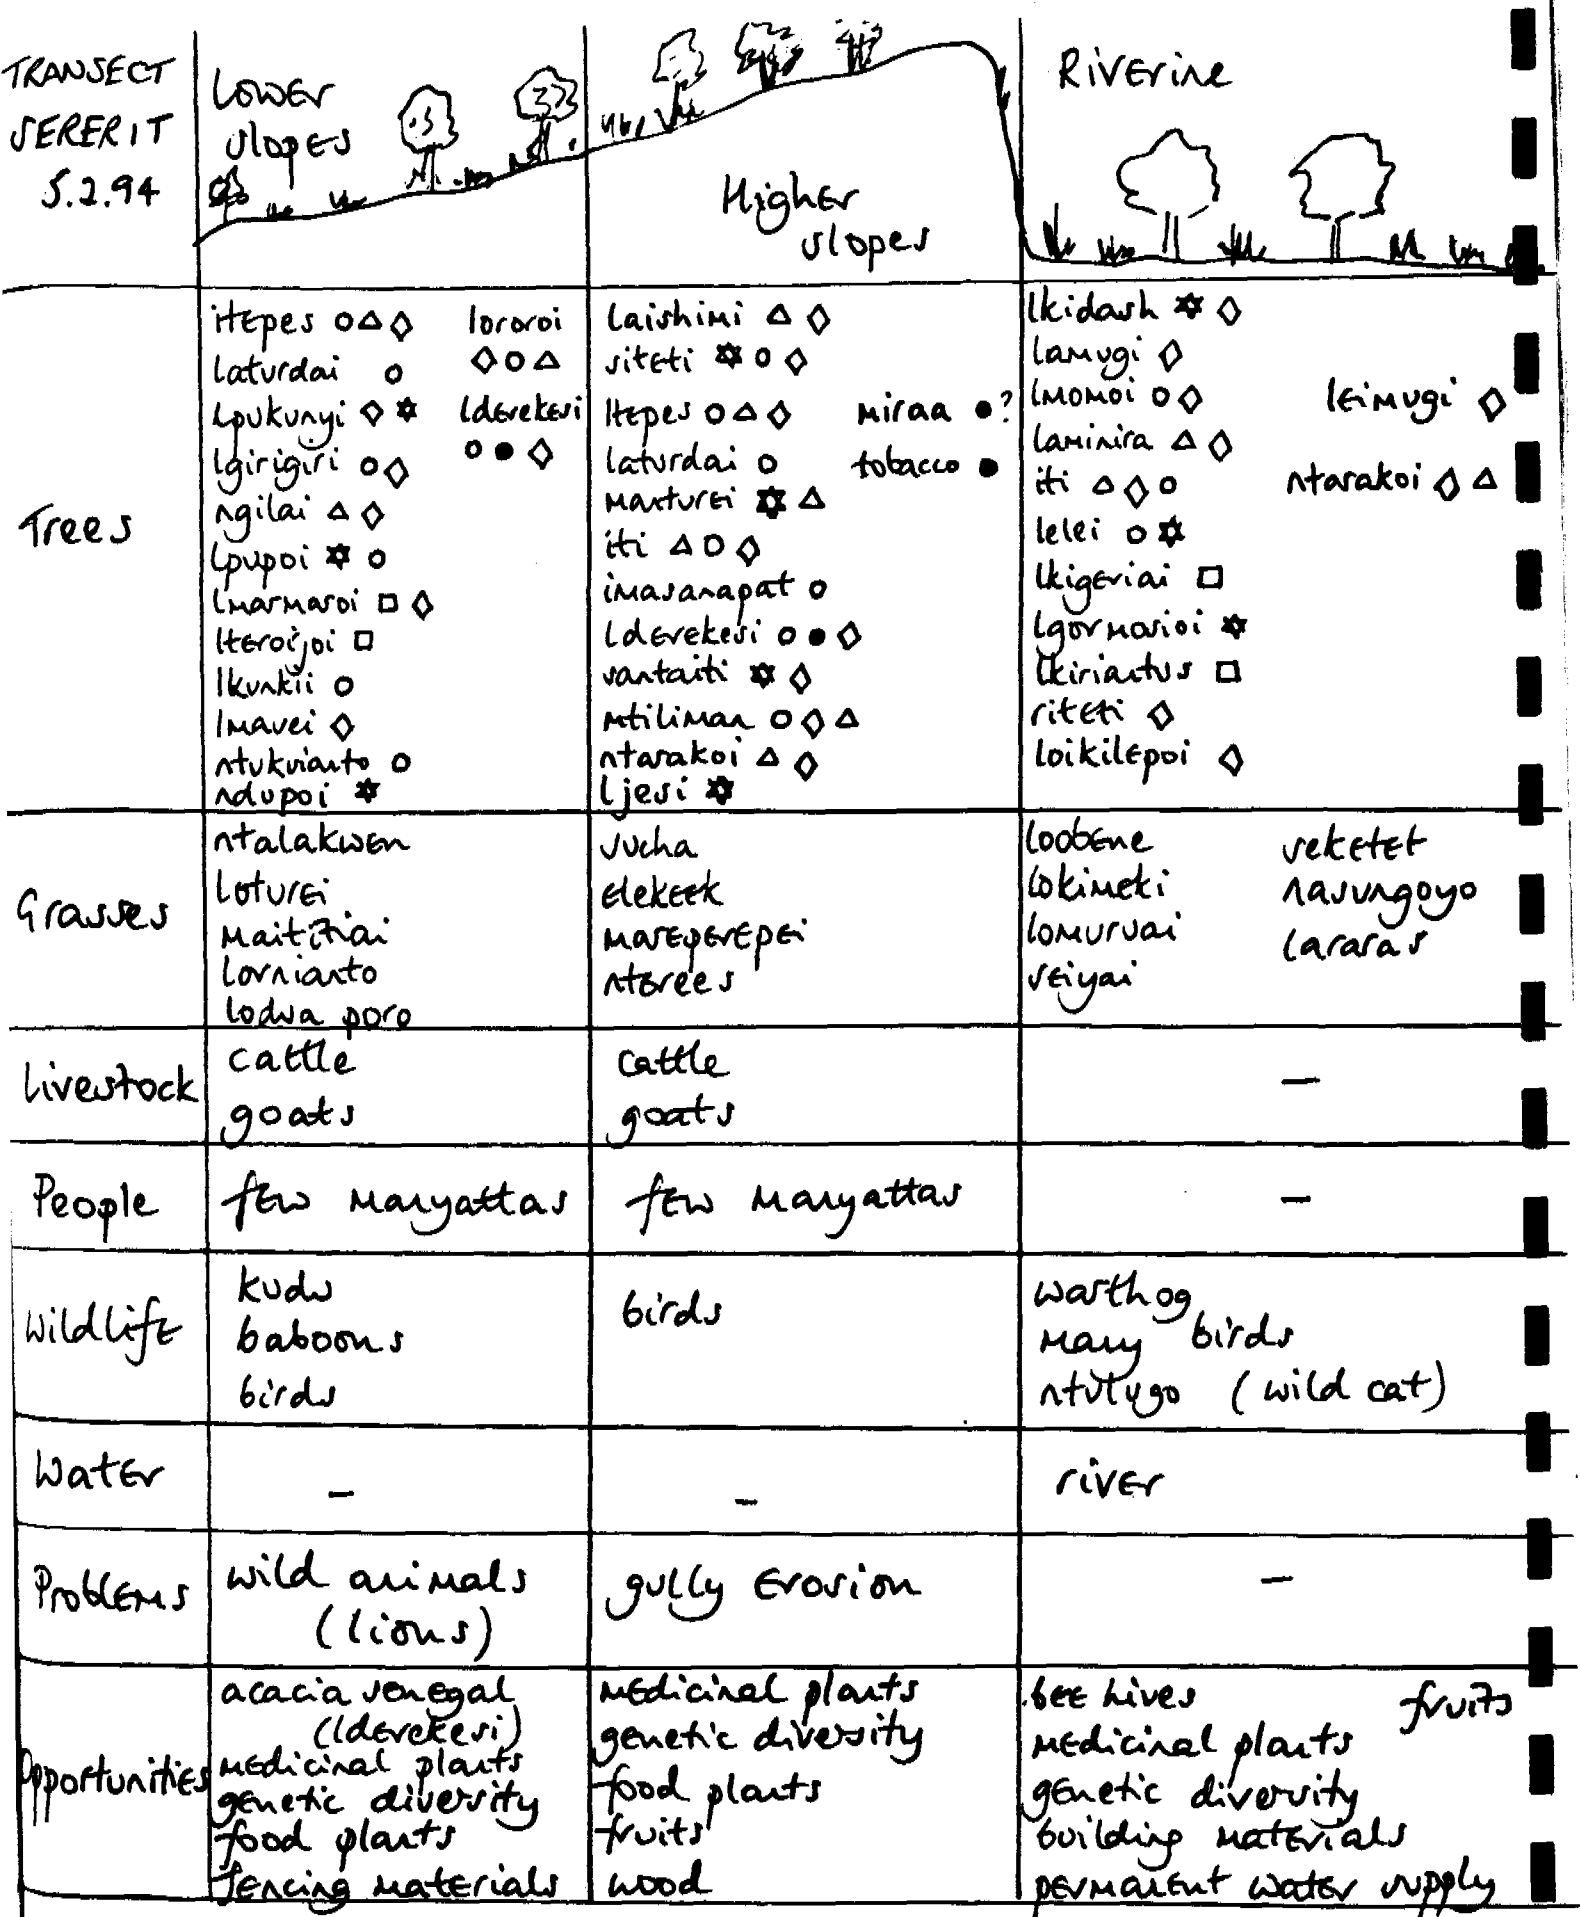 TRANSECT
SERERIT
5.2.94
Lower
slopes
Higher
slopes
Riverine
Trees
itepes ○△◇
laturdai ○
lpukunyi ◇✡
lgirigiri ○◇
ngilai △◇
lpupoi ✡○
lmarmaroi □◇
lteroijoi □
lkunkii ○
lmavei ◇
ntukvianto ○
ndupoi ✡
lororoi
◇○△
lderekesi
○●◇
laishimi △◇
siteti ✡○◇
ltepes ○△◇
laturdai ○
manturei ✡△
iti △○◇
imasanapat ○
lderekesi ○●◇
santaiti ✡◇
mtiliman ○◇△
ntarakoi △◇
ljesi ✡
miraa ●?
tobacco ●
lkidash ✡◇
lamugi ◇
lmomoi ○◇
laminira △◇
iti △◇○
lelei ○✡
lkigeriai □
lgormosioi ✡
lkiriantus □
riteti ◇
loikilepoi ◇
leimugi ◇
ntarakoi ◇△
Grasses
ntalakwen
loturei
lornianto
lodwa poro
sucha
elekeek
mareperepei
nterees
loobene
lokimeki
lomuruai
seiyai
seketet
nasungoyo
lararas
Livestock
cattle
goats
cattle
goats
–
People
few manyattas
few manyattas
–
Wildlife
kudu
baboons
birds
birds
warthog
many birds
ntulugo (wild cat)
Water
–
–
river
Problems
wild animals
(lions)
gully erosion
–
Opportunities
acacia senegal
(lderekesi)
medicinal plants
genetic diversity
food plants
fencing materials
medicinal plants
genetic diversity
food plants
fruits
wood
bee hives
medicinal plants
genetic diversity
building materials
permanent water supply
fruits